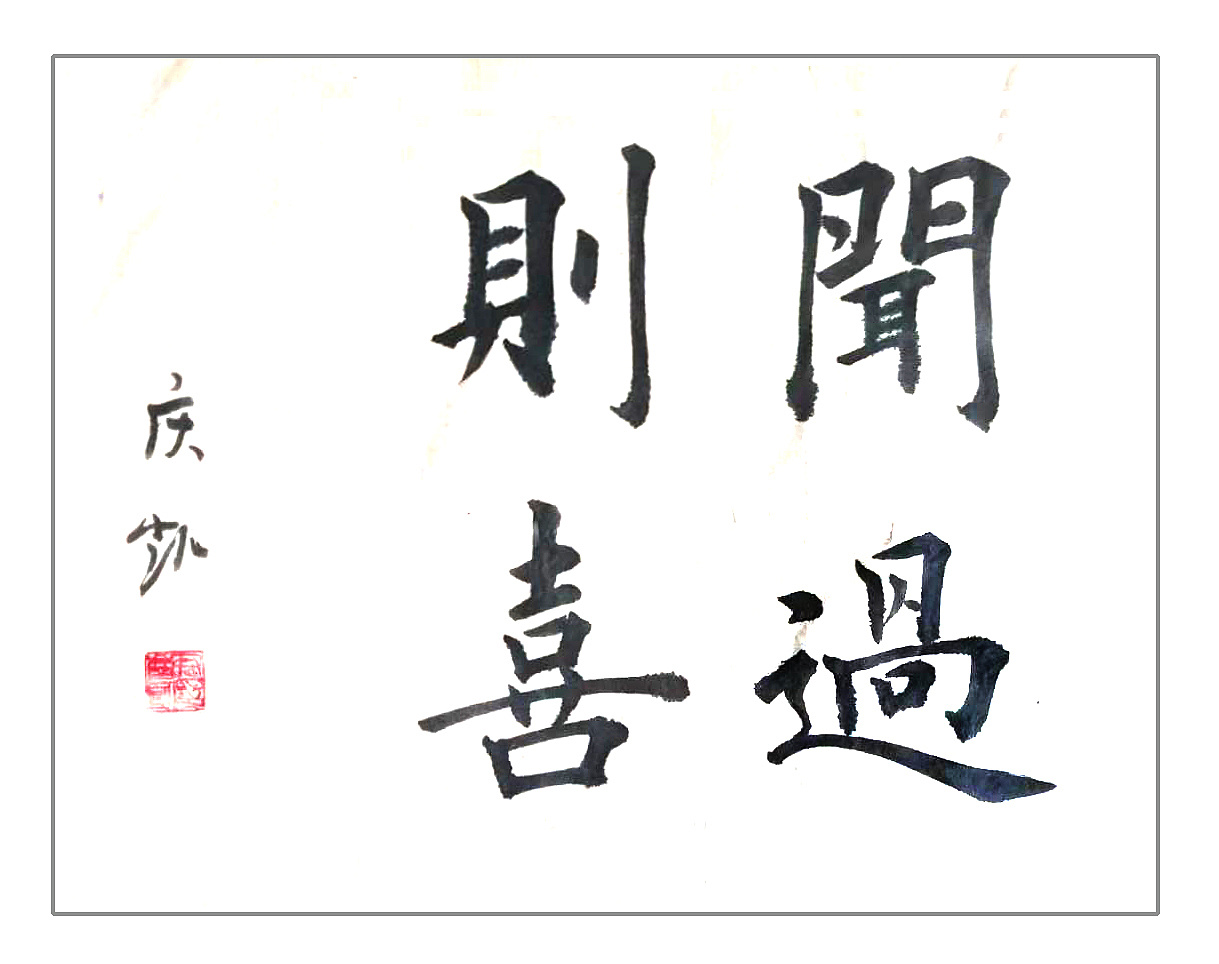 聞過
則喜
庆凯